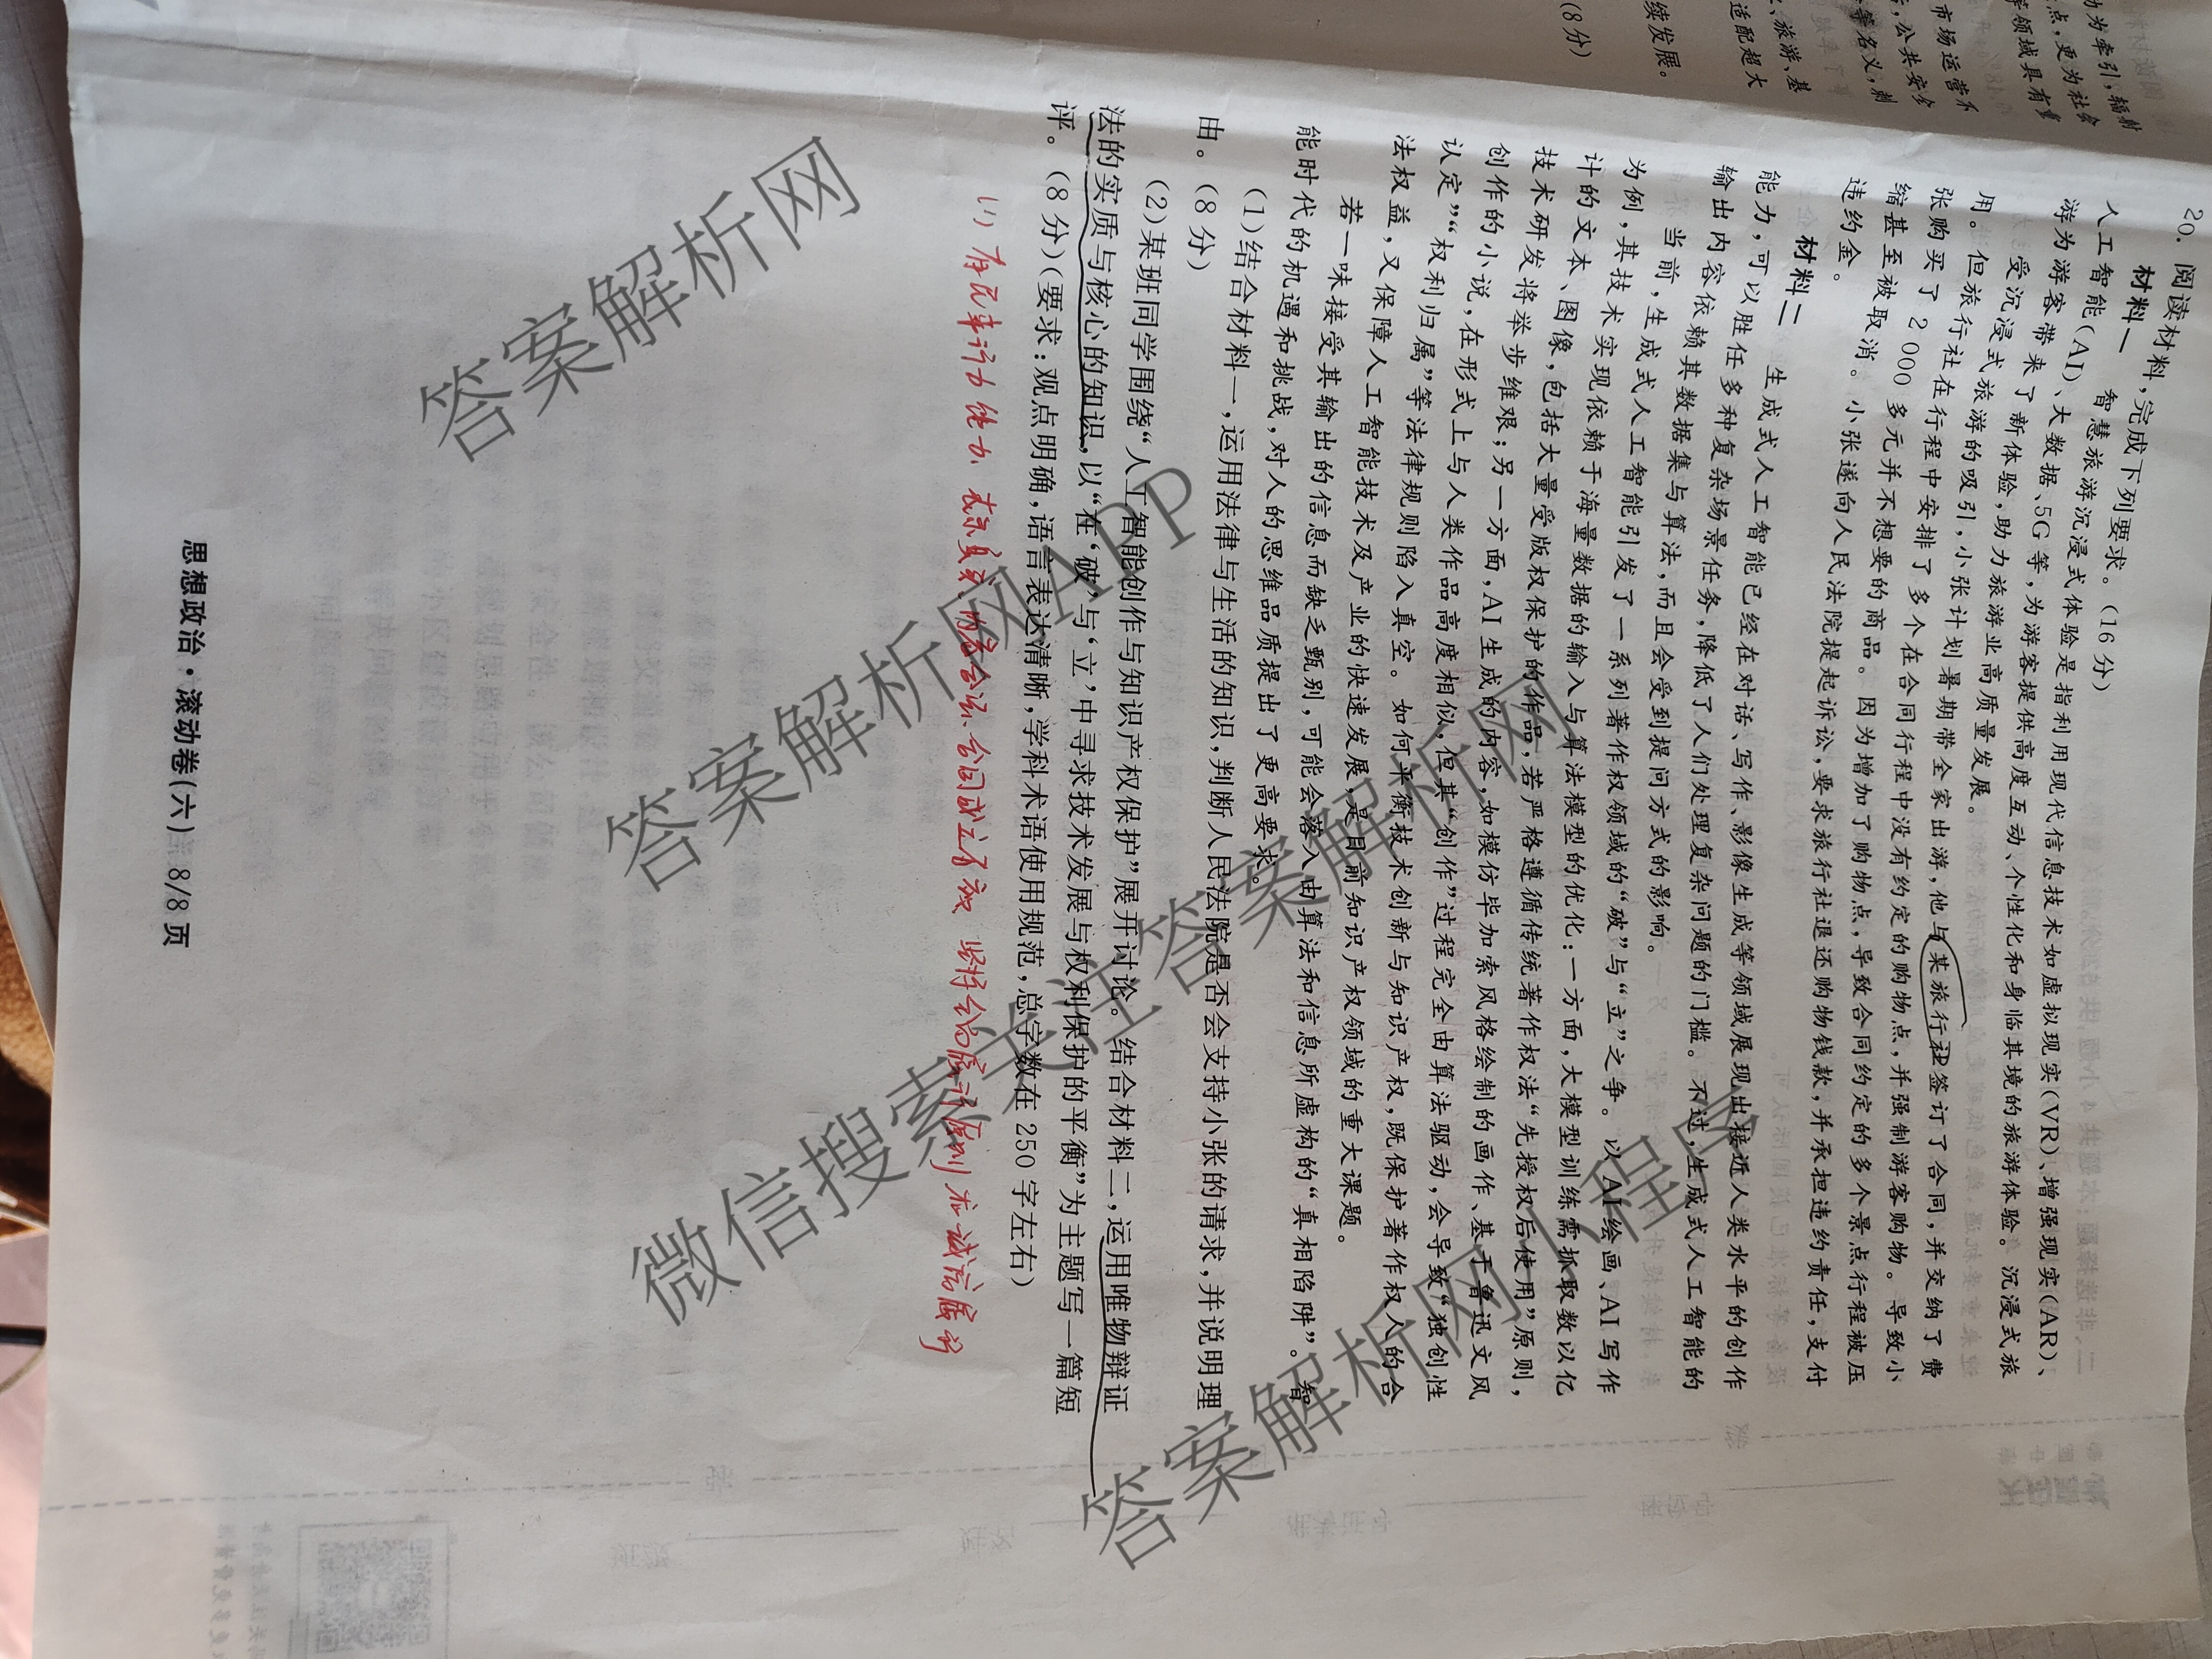 动为牵引,辐射
点,更为社会
等领域具有重
市场运营不
,公共安全
等名义,制
、旅游、基
适配超大
续发展。
(8分)
20. 阅读材料,完成下列要求。(16分)
材料一 智慧旅游沉浸式体验是指利用现代信息技术如虚拟现实(VR)、增强现实(AR)、
人工智能(AI)、大数据、5G等,为游客提供高度互动、个性化和身临其境的旅游体验。沉浸式旅
游为游客带来了新体验,助力旅游业高质量发展。
受沉浸式旅游的吸引,小张计划暑期带全家出游,他与某旅行社签订了合同,并交纳了费
用。但旅行社在行程中安排了多个在合同行程中没有约定的购物点,并强制游客购物。导致小
张购买了2000多元并不想要的商品。因为增加了购物点,导致合同约定的多个景点行程被压
缩甚至被取消。小张遂向人民法院提起诉讼,要求旅行社退还购物钱款,并承担违约责任,支付
违约金。
材料二 生成式人工智能已经在对话、写作、影像生成等领域展现出接近人类水平的创作
能力,可以胜任多种复杂场景任务,降低了人们处理复杂问题的门槛。不过,生成式人工智能的
输出内容依赖其数据集与算法,而且会受到提问方式的影响。
当前,生成式人工智能引发了一系列著作权领域的“破”与“立”之争。以AI绘画、AI写作
为例,其技术实现依赖于海量数据的输入与算法模型的优化:一方面,大模型训练需抓取数以亿
计的文本、图像,包括大量受版权保护的作品,若严格遵循传统著作权法“先授权后使用”原则,
技术研发将举步维艰;另一方面,AI生成的内容,如模仿毕加索风格绘制的画作、基于鲁迅文风
创作的小说,在形式上与人类作品高度相似,但其“创作”过程完全由算法驱动,会导致“独创性
认定”“权利归属”等法律规则陷入真空。如何平衡技术创新与知识产权,既保护著作权人的合
法权益,又保障人工智能技术及产业的快速发展,是目前知识产权领域的重大课题。
若一味接受其输出的信息而缺乏甄别,可能会落入由算法和信息所虚构的“真相陷阱”。智
能时代的机遇和挑战,对人的思维品质提出了更高要求。
(1)结合材料一,运用法律与生活的知识,判断人民法院是否会支持小张的请求,并说明理
由。(8分)
(2)某班同学围绕“人工智能创作与知识产权保护”展开讨论。结合材料二,运用唯物辩证
法的实质与核心的知识,以“在‘破’与‘立’中寻求技术发展与权利保护的平衡”为主题写一篇短
评。(8分)(要求:观点明确,语言表达清晰,学科术语使用规范,总字数在250字左右)
(1) 有民事行为能力 表示真实 内容合法 合同成立有效
思想政治·滚动卷(六)第8/8页
答案解析网
答案解析网APP
微信搜索关注答案解析网
答案解析网小程序